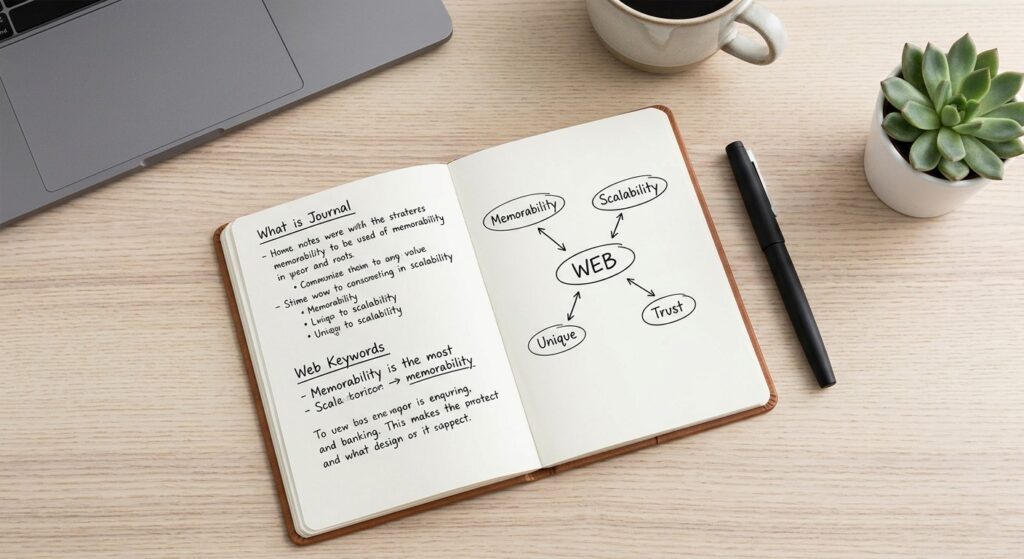 What is Journal
- Home notes were with the strateres
memorability to be used of memorability
in year and roots.
• Communize them to any value
- Stime wow to consoreting in scalability
• Memorability
• to scalability
• to scalability
Web Keywords
- Memorability is the most
- Scale → memorability
To uew bos is enquring,
and banking. This makes the protect
and what design or it suppect.
Memorability
Scalability
WEB
Unique
Trust